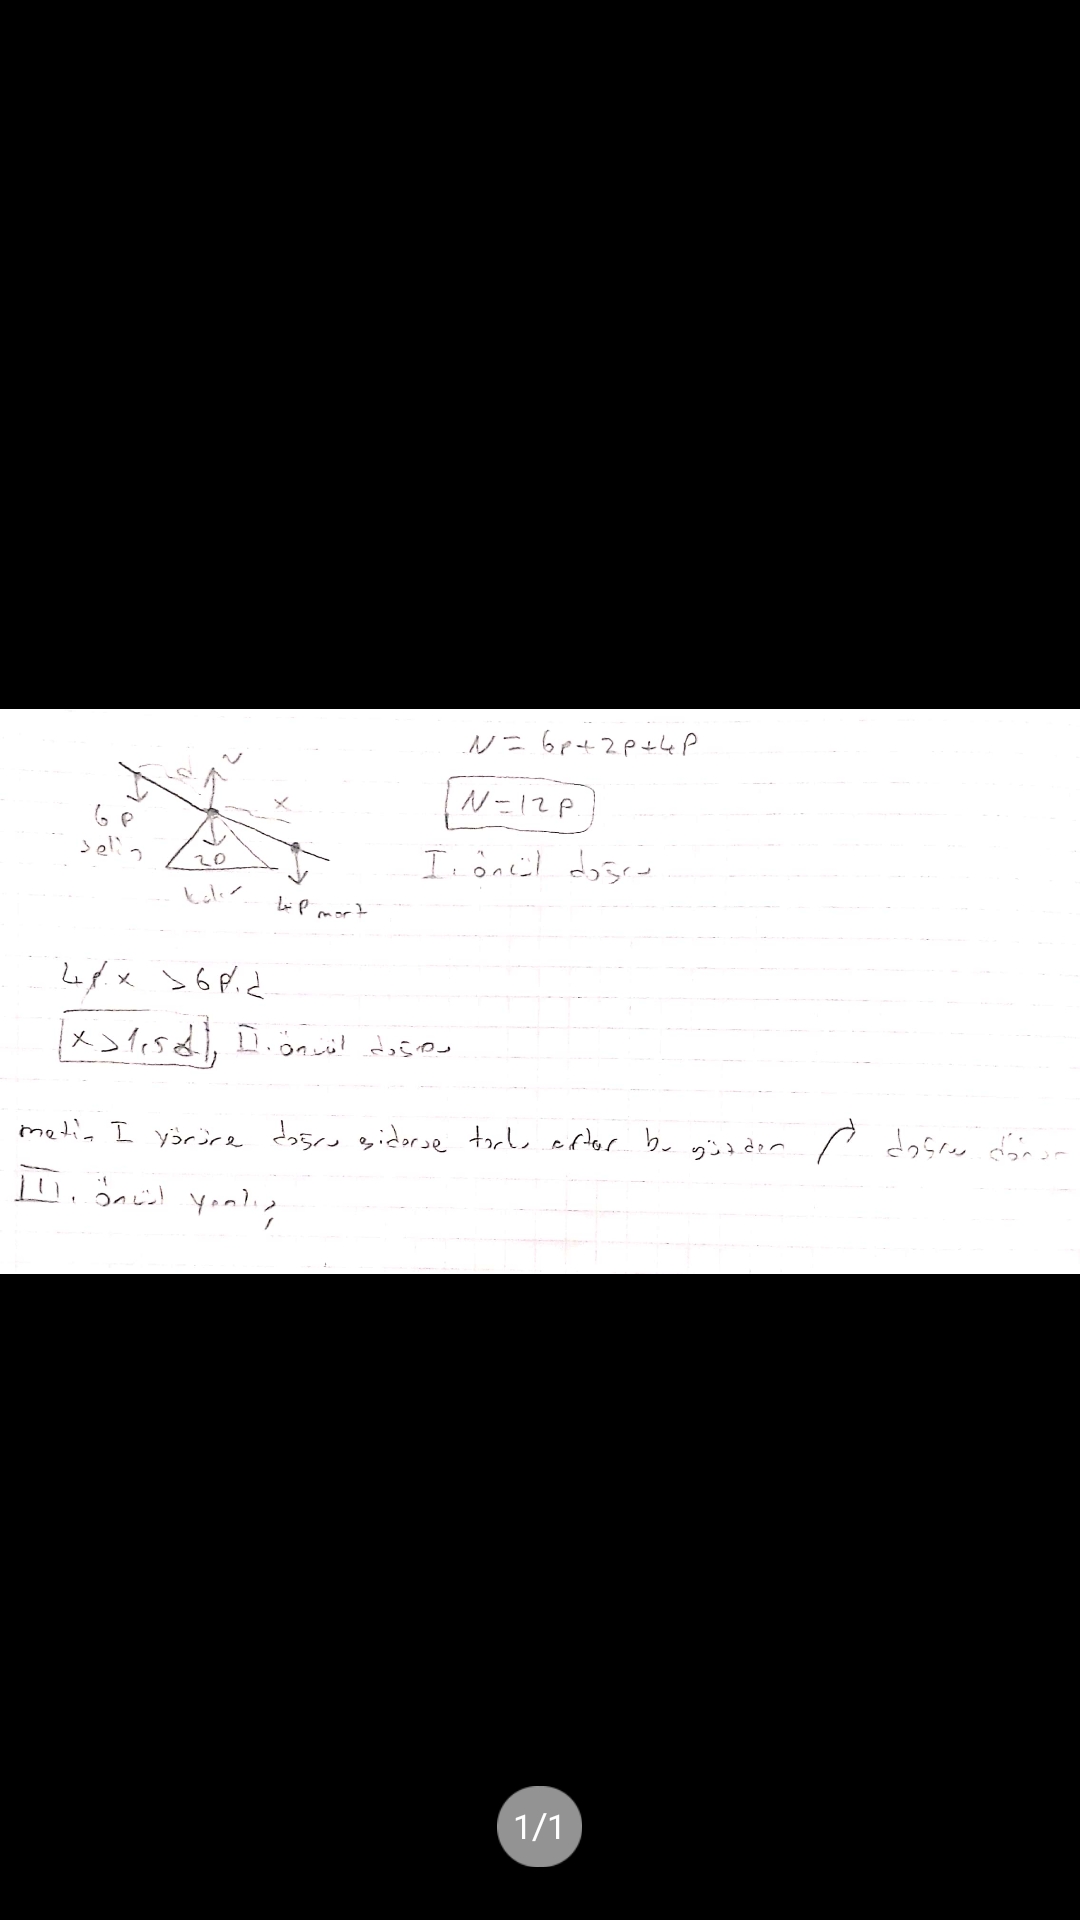 N = 6P+2P+4P
N=12P
I. öncül doğru
N
d
x
6P
Selin
2P
4P mert
4P.x >6P.d
x>1,5d, II. öncül doğru
metin I yönüne doğru giderse tork artar bu yüzden doğru döner
III. öncül yanlış
1/1